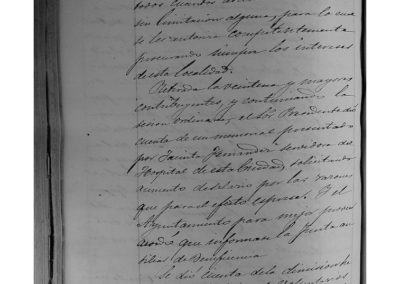 sin limitacion alguna, para lo cual
se les autoriza competentemente
procurando siempre los intereses
de esta localidad.
Retirada la veintena y mayores
contribuyentes, y continuando la
sesion ordinaria, el Sor Presidente dió
cuenta de un memorial presentado
por Jacinta Fernandez servidora del
Hospital de esta Ciudad, solicitando
aumento de salario por las razones
que para el efecto espresa. Y el
Ayuntamiento para mejor proveer
acordó que informase la Junta au-
siliar de Beneficencia.
Se dió cuenta de la dimision de